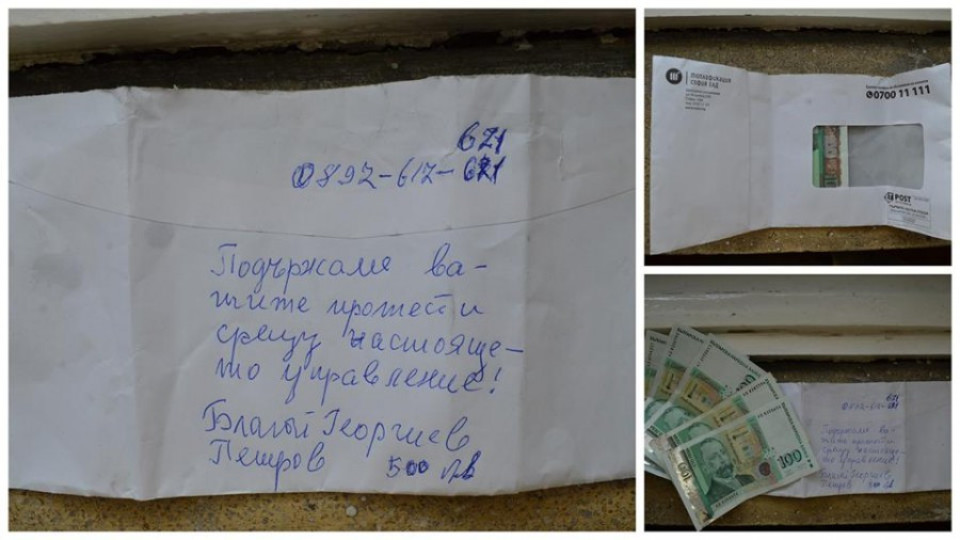 621
0892-612-621
Подържаме ва-
шите протести
срещу настояще-
то управление!
Благой Георгиев
Петров 500 лв
ТОПЛОФИКАЦИЯ
СОФИЯ ЕАД
0700 11 111
POST
100
100
621
Подържаме ва-
шите протести
срещу настояще-
то управление!
Благой Георгиев
Петров 500 лв